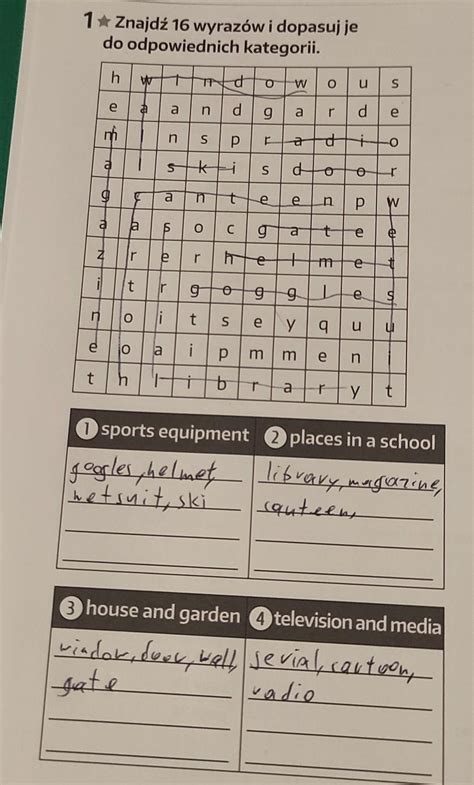 1 ★ Znajdź 16 wyrazów i dopasuj je
do odpowiednich kategorii.
h w i n d o w o u s
e a a n d g a r d e
m l n s p r a d i o
a l s k i s d o o r
g c a n t e e n p w
a a s o c g a t e e
z r e r h e l m e t
i t r g o g g l e s
n o i t s e y q u u
e o a i p m m e n i
t n l i b r a r y t
1 sports equipment
googles, helmet,
wetsuit, ski
2 places in a school
library, magazine,
canteen,
3 house and garden
window, door, wall,
gate
4 television and media
serial, cartoon,
radio